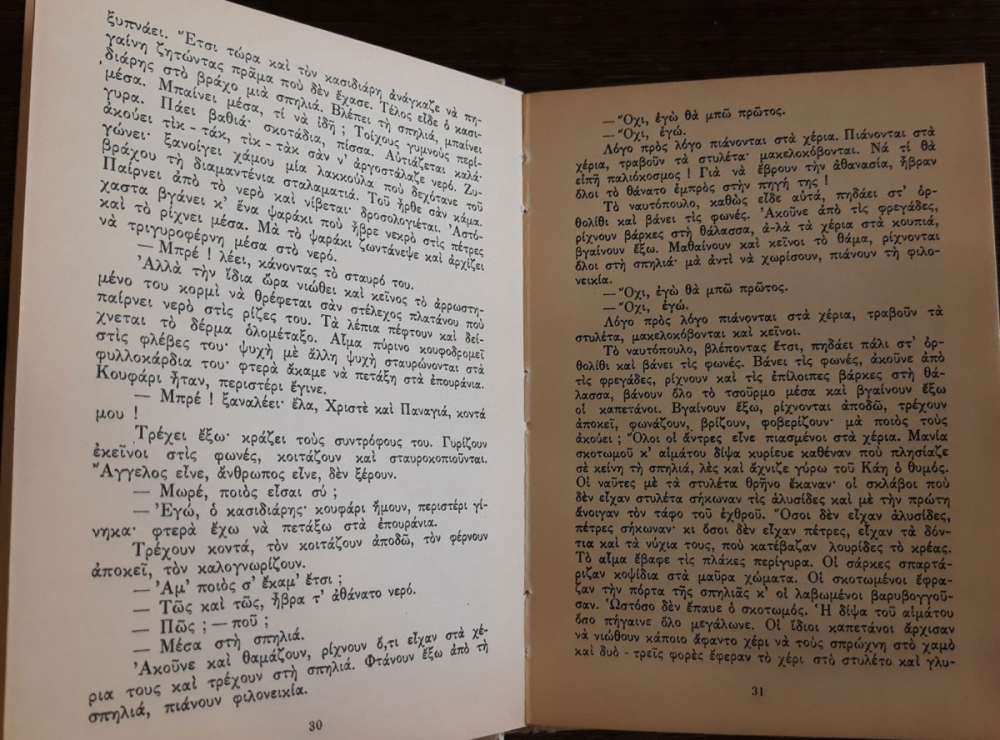 ξυπνάει. Ἔτσι τώρα καὶ τὸν κασιδιάρη ἀνάγκαζε νὰ πη-
γαίνη ζητώντας πρᾶμα ποὺ δὲν ἔχασε. Τέλος εἶδε ὁ κασι-
διάρης στὸ βράχο μιὰ σπηλιά. Βλέπει τὴ σπηλιά, μπαίνει
μέσα. Μπαίνει μέσα, τί νὰ ἰδῆ ; Τοίχους γυμνοὺς περί-
γυρα. Πάει βαθιά· σκοτάδια, πίσσα. Αὐτιάζεται καλά·
ἀκούει τὶκ - τάκ, τὶκ - τὰκ σὰν ν' ἀργοστάλαζε νερό. Ζυ-
γώνει· ξανοίγει χάμου μία λακκούλα ποὺ δεχότανε τοῦ
βράχου τὴ διαμαντένια σταλαματιά. Τοῦ ἦρθε σὰν κάμα.
Παίρνει ἀπὸ τὸ νερὸ καὶ νίβεται· δροσολογιέται. Ἀστό-
χαστα βγάνει κ' ἕνα ψαράκι ποὺ ἧβρε νεκρὸ στὶς πέτρες
καὶ τὸ ρίχνει μέσα. Μὰ τὸ ψαράκι ζωντάνεψε καὶ ἀρχίζει
νὰ τριγυροφέρνη μέσα στὸ νερό.
— Μπρέ ! λέει, κάνοντας τὸ σταυρό του.
Ἀλλὰ τὴν ἴδια ὥρα νιώθει καὶ κεῖνος τὸ ἀρρωστη-
μένο του κορμὶ νὰ θρέφεται σὰν στέλεχος πλατάνου ποὺ
παίρνει νερὸ στὶς ρίζες του. Τὰ λέπια πέφτουν καὶ δεί-
χνεται τὸ δέρμα ὁλομέταξο. Αἷμα πύρινο κουφοδρομεῖ
στὶς φλέβες του· ψυχὴ μὲ ἄλλη ψυχὴ σταυρώνονται στὰ
φυλλοκάρδια του· φτερὰ ἄκαμε νὰ πετάξη στὰ ἐπουράνια.
Κουφάρι ἦταν, περιστέρι ἔγινε.
— Μπρέ ! ξαναλέει· ἔλα, Χριστὲ καὶ Παναγιά, κοντά
μου !
Τρέχει ἔξω· κράζει τοὺς συντρόφους του. Γυρίζουν
ἐκεῖνοι στὶς φωνές, κοιτάζουν καὶ σταυροκοπιοῦνται.
Ἄγγελος εἶνε, ἄνθρωπος εἶνε, δὲν ξέρουν.
— Μωρέ, ποιὸς εἶσαι σύ ;
— Ἐγώ, ὁ κασιδιάρης· κουφάρι ἤμουν, περιστέρι γί-
νηκα· φτερὰ ἔχω νὰ πετάξω στὰ ἐπουράνια.
Τρέχουν κοντά, τὸν κοιτάζουν ἀποδῶ, τὸν φέρνουν
ἀποκεῖ, τὸν καλογνωρίζουν.
— Ἀμ' ποιὸς σ' ἔκαμ' ἔτσι ;
— Τῶς καὶ τῶς, ἧβρα τ' ἀθάνατο νερό.
— Πῶς ; — ποῦ ;
— Μέσα στὴ σπηλιά.
Ἀκοῦνε καὶ θαμάζουν, ρίχνουν ὅ,τι εἶχαν στὰ χέ-
ρια τους καὶ τρέχουν στὴ σπηλιά. Φτάνουν ἔξω ἀπὸ τὴ
σπηλιά, πιάνουν φιλονεικία.
30
— Ὄχι, ἐγὼ θὰ μπῶ πρῶτος.
— Ὄχι, ἐγώ.
Λόγο πρὸς λόγο πιάνονται στὰ χέρια. Πιάνονται στὰ
χέρια, τραβοῦν τὰ στυλέτα· μακελοκόβονται. Νά τί θὰ
εἰπῆ παλιόκοσμος ! Γιὰ νὰ ἕβρουν τὴν ἀθανασία, ἧβραν
ὅλοι τὸ θάνατο ἐμπρὸς στὴν πηγή της !
Τὸ ναυτόπουλο, καθὼς εἶδε αὐτά, πηδάει στ' ὀρ-
θολίθι καὶ βάνει τὶς φωνές. Ἀκοῦνε ἀπὸ τὶς φρεγάδες,
ρίχνουν βάρκες στὴ θάλασσα, ἀ-λὰ τὰ χέρια στὰ κουπιά,
βγαίνουν ἔξω. Μαθαίνουν καὶ κεῖνοι τὸ θάμα, ρίχνονται
ὅλοι στὴ σπηλιά· μὰ ἀντὶ νὰ χωρίσουν, πιάνουν τὴ φιλο-
νεικία.
— Ὄχι, ἐγὼ θὰ μπῶ πρῶτος.
— Ὄχι, ἐγώ.
Λόγο πρὸς λόγο πιάνονται στὰ χέρια, τραβοῦν τὰ
στυλέτα, μακελοκόβονται καὶ κεῖνοι.
Τὸ ναυτόπουλο, βλέποντας ἔτσι, πηδάει πάλι στ' ὀρ-
θολίθι καὶ βάνει τὶς φωνές. Βάνει τὶς φωνές, ἀκοῦνε ἀπὸ
τὶς φρεγάδες, ρίχνουν καὶ τὶς ἐπίλοιπες βάρκες στὴ θά-
λασσα, βάνουν ὅλο τὸ τσοῦρμο μέσα καὶ βγαίνουν ἔξω
οἱ καπετάνοι. Βγαίνουν ἔξω, ρίχνονται ἀποδῶ, τρέχουν
ἀποκεῖ, φωνάζουν, βρίζουν, φοβερίζουν· μὰ ποιὸς τοὺς
ἀκούει ; Ὅλοι οἱ ἄντρες εἶνε πιασμένοι στὰ χέρια. Μανία
σκοτωμοῦ κ' αἱμάτου δίψα κυρίευε καθέναν ποὺ πλησίαζε
σὲ κείνη τὴ σπηλιά, λὲς καὶ ἄχνιζε γύρω τοῦ Κάη ὁ θυμός.
Οἱ ναῦτες μὲ τὰ στυλέτα θρῆνο ἔκαναν· οἱ σκλάβοι ποὺ
δὲν εἶχαν στυλέτα σήκωναν τὶς ἁλυσίδες καὶ μὲ τὴν πρώτη
ἄνοιγαν τὸν τάφο τοῦ ἐχθροῦ. Ὅσοι δὲν εἶχαν ἁλυσίδες,
πέτρες σήκωναν· κι ὅσοι δὲν εἶχαν πέτρες, εἶχαν τὰ δόν-
τια καὶ τὰ νύχια τους, ποὺ κατέβαζαν λουρίδες τὸ κρέας.
Τὸ αἷμα ἔβαφε τὶς πλάκες περίγυρα. Οἱ σάρκες σπαρτά-
ριζαν κοψίδια στὰ μαῦρα χώματα. Οἱ σκοτωμένοι ἔφρα-
ζαν τὴν πόρτα τῆς σπηλιᾶς κ' οἱ λαβωμένοι βαρυβογγοῦ-
σαν. Ὡστόσο δὲν ἔπαυε ὁ σκοτωμός. Ἡ δίψα τοῦ αἱμάτου
ὅσο πήγαινε ὅλο μεγάλωνε. Οἱ ἴδιοι καπετάνοι ἄρχισαν
νὰ νιώθουν κάποιο ἄφαντο χέρι νὰ τοὺς σπρώχνη στὸ χαμὸ
καὶ δυὸ - τρεῖς φορὲς ἔφεραν τὸ χέρι στὸ στυλέτο καὶ γλυ-
31